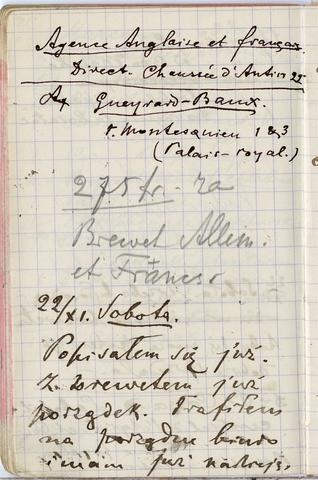 Agence Anglaise et française.
Direct. Chaussée d'Antin 22
Gueyrard-Baux.
r. Montesquieu 1 & 3
(Palais-royal.)
275 fr. - za
Brewet Allem.
et Frances
22/XI. Sobota.
Popisałem się już.
Z brewetem już
porządek. Trafiłem
na porządne biuro
i mam już nadzieję.